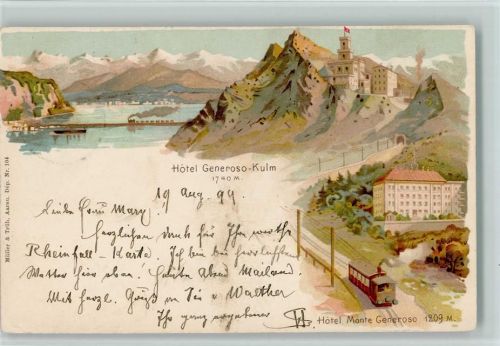 Hôtel Generoso-Kulm
1740 M.
19 Aug. 99
Liebe Frau Mary
Herzlichen Dank für Ihre werthe
Rheinfall-Karte. Ich bin bei herrlichstem
Wetter hier oben. Heute Abend Mailand.
Mit herzl. Gruß an Sie u Walther
Ihr ganz ergebener
Hôtel Monte Generoso 1209 M.
Müller & Trüb, Aarau. Dep. Nr. 104